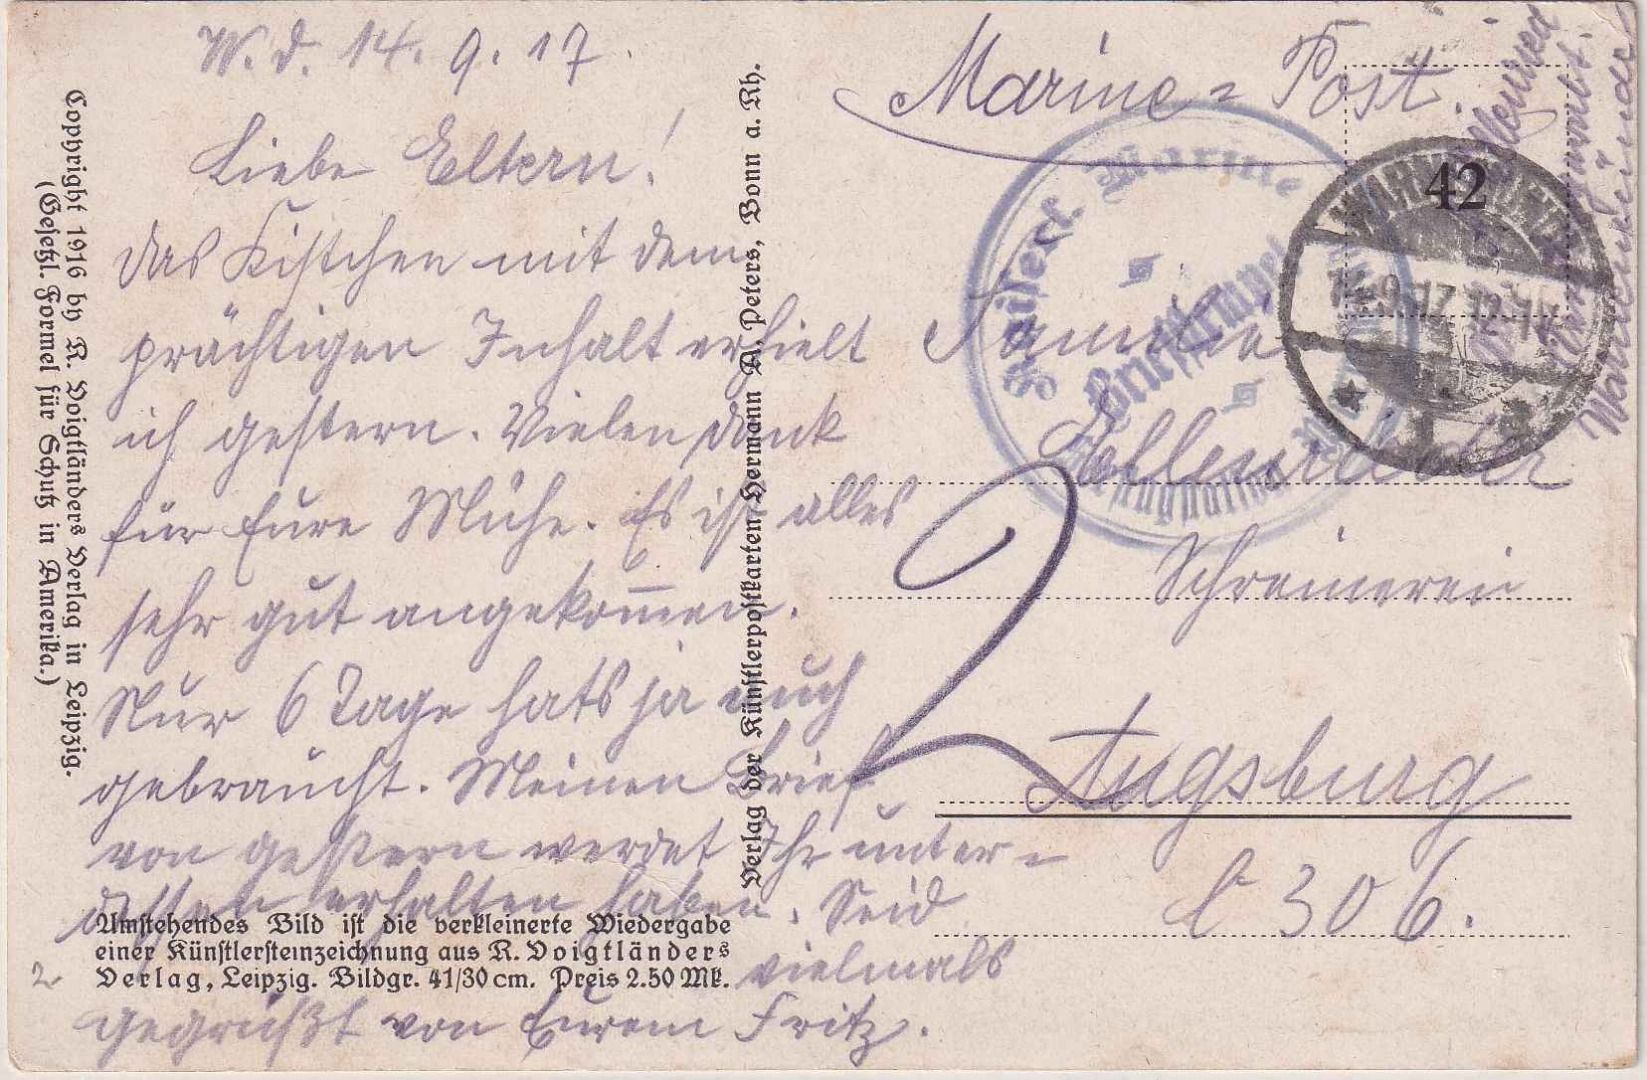 W. d. 14. 9. 17.
Liebe Eltern!
Das Kistchen mit dem
prächtigen Inhalt erhielt
ich gestern. Vielen Dank
für Eure Mühe. Es ist alles
sehr gut angekom̅en.
Nur 6 Tage hats ja auch
gebraucht. Meinen Brief
von gestern werdet Ihr unter=
dessen erhalten haben. Seid
vielmals
gegrüßt von Eurem Fritz.
Marine=Post.
Familie
Schreinerei
Augsburg
C 306.
2
2
42
Kaiserl. Marine
Briefstempel
Copyright 1916 by R. Voigtländers Verlag in Leipzig.
(Gesetzl. Formel für Schutz in Amerika.)
Verlag der Künstlerpostkarten Hermann A. Peters, Bonn a. Rh.
Umstehendes Bild ist die verkleinerte Wiedergabe
einer Künstlersteinzeichnung aus R. Voigtländers
Verlag, Leipzig. Bildgr. 41/30 cm. Preis 2.50 Mk.